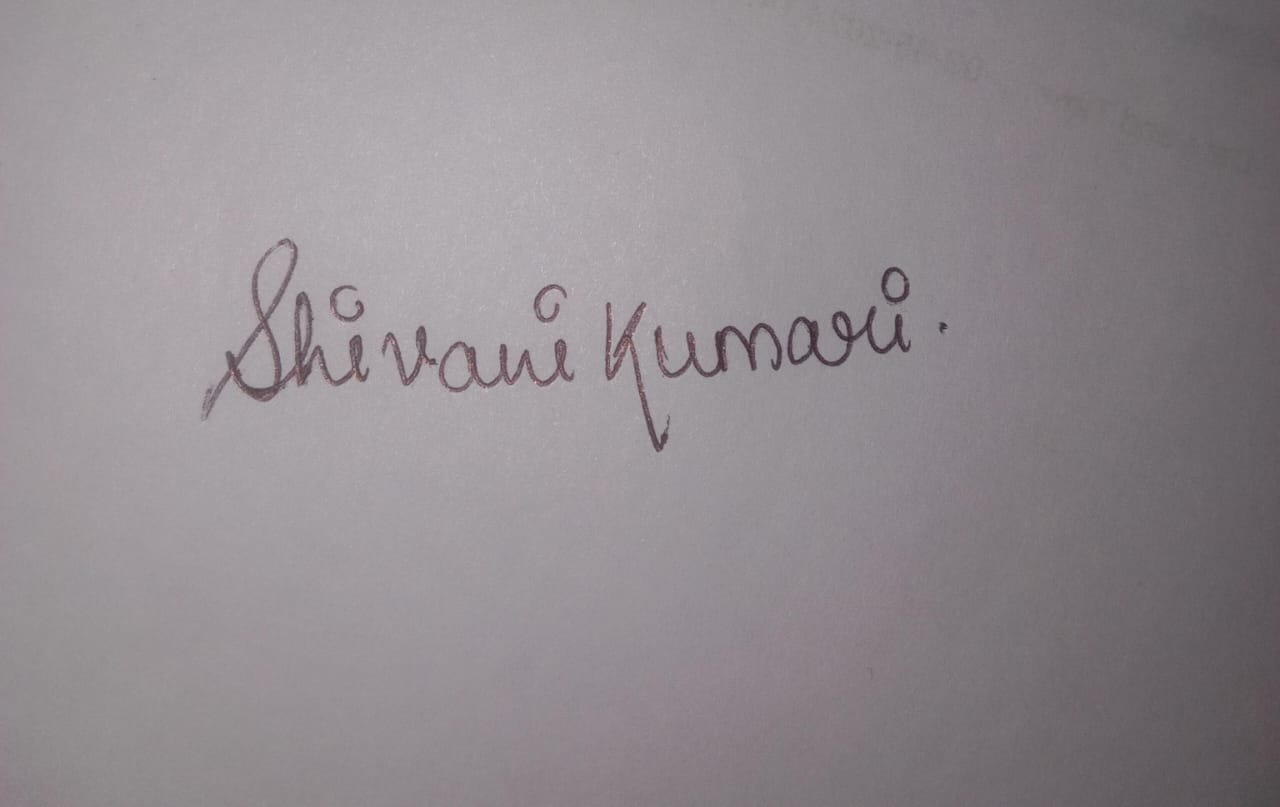 Shivani Kumari.